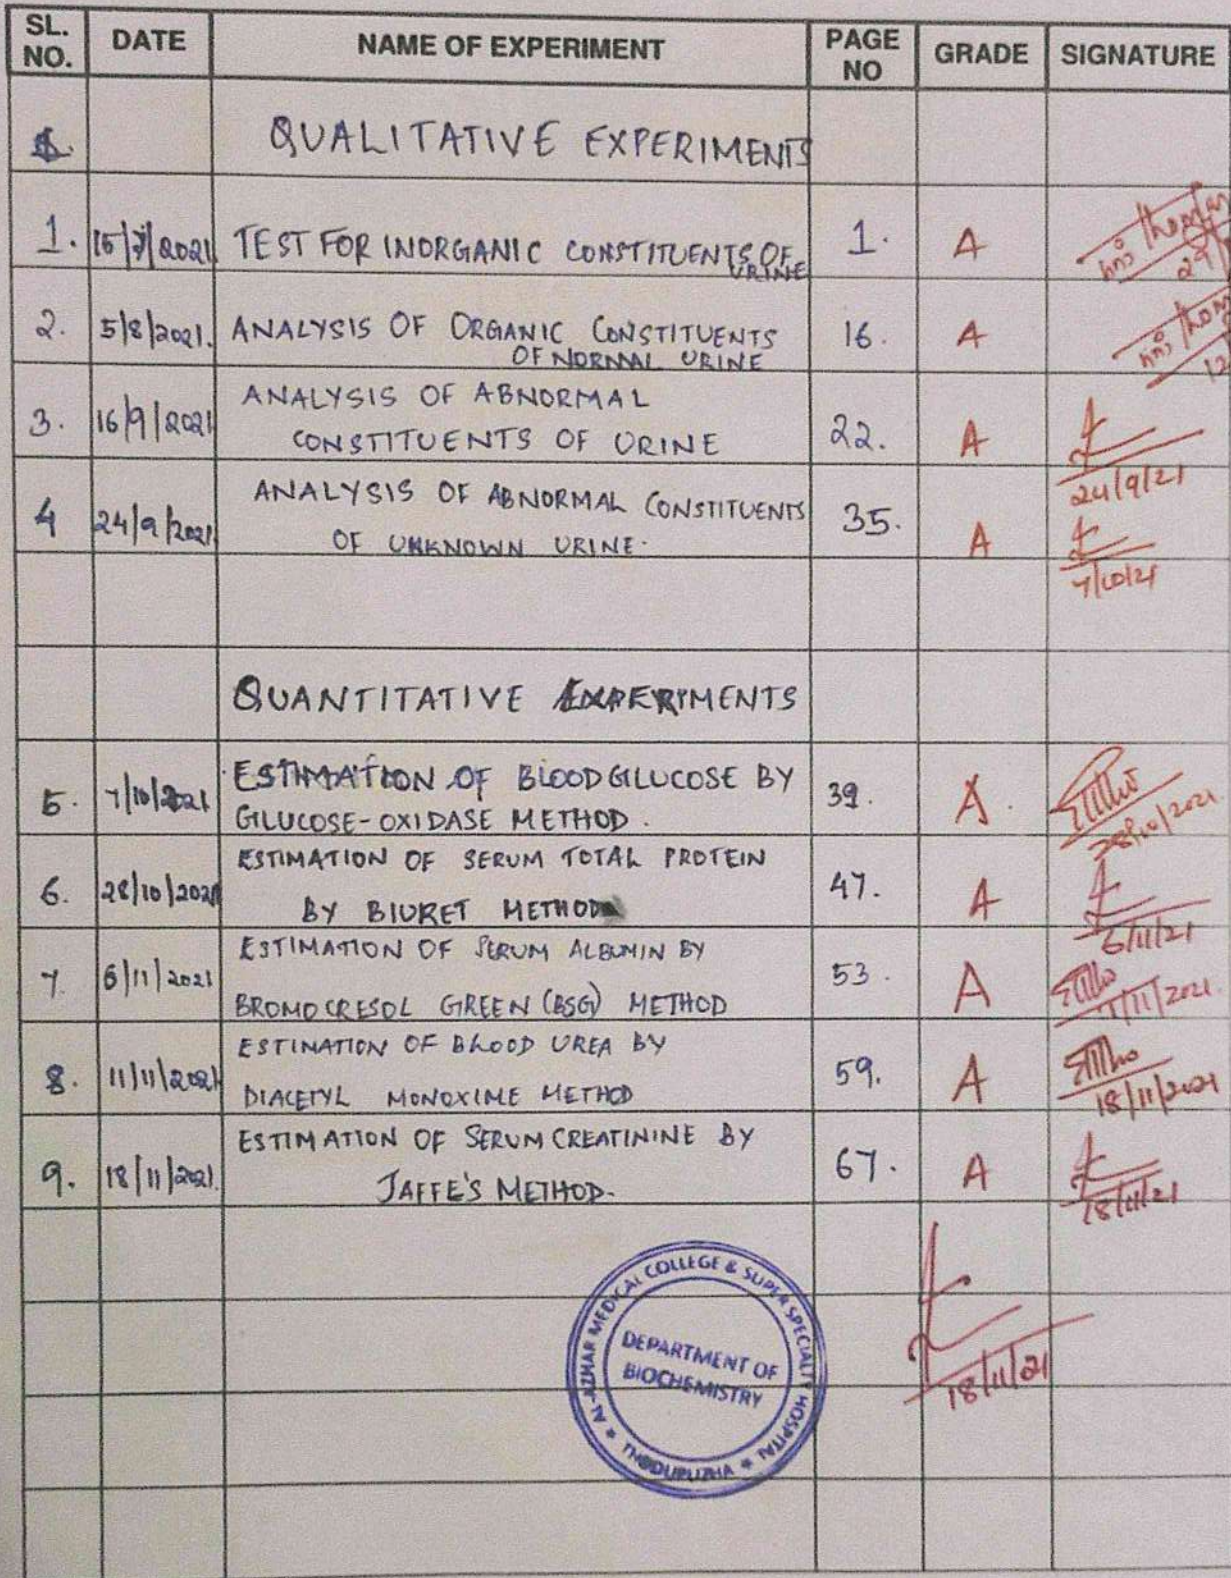 SL. NO. DATE NAME OF EXPERIMENT PAGE NO GRADE SIGNATURE
QUALITATIVE EXPERIMENTS
1. 15/7/2021 TEST FOR INORGANIC CONSTITUENTS OF 1. A
URINE
2. 5/8/2021. ANALYSIS OF ORGANIC CONSTITUENTS 16. A
OF NORMAL URINE
3. 16/9/2021 ANALYSIS OF ABNORMAL
CONSTITUENTS OF URINE 22. A
24/9/21
4 24/9/2021 ANALYSIS OF ABNORMAL CONSTITUENTS 35.
OF UNKNOWN URINE. A
7/10/21
QUANTITATIVE EXPERIMENTS
5. 7/10/2021 ESTIMATION OF BLOOD GLUCOSE BY 39. A
GLUCOSE-OXIDASE METHOD.
28/10/2021
6. 28/10/2021 ESTIMATION OF SERUM TOTAL PROTEIN 47.
BY BIURET METHOD A
6/11/21
7. 6/11/2021 ESTIMATION OF SERUM ALBUMIN BY 53. A
BROMOCRESOL GREEN (BSG) METHOD
11/11/2021.
8. 11/11/2021 ESTINATION OF BLOOD UREA BY 59. A
DIACETYL MONOXIME METHOD
18/11/2021
9. 18/11/2021. ESTIMATION OF SERUM CREATININE BY 67. A
JAFFE'S METHOD.
18/11/21
AL-AZHAR MEDICAL COLLEGE & SUPER SPECIALITY HOSPITAL * THODUPUZHA *
DEPARTMENT OF
BIOCHEMISTRY
18/11/21